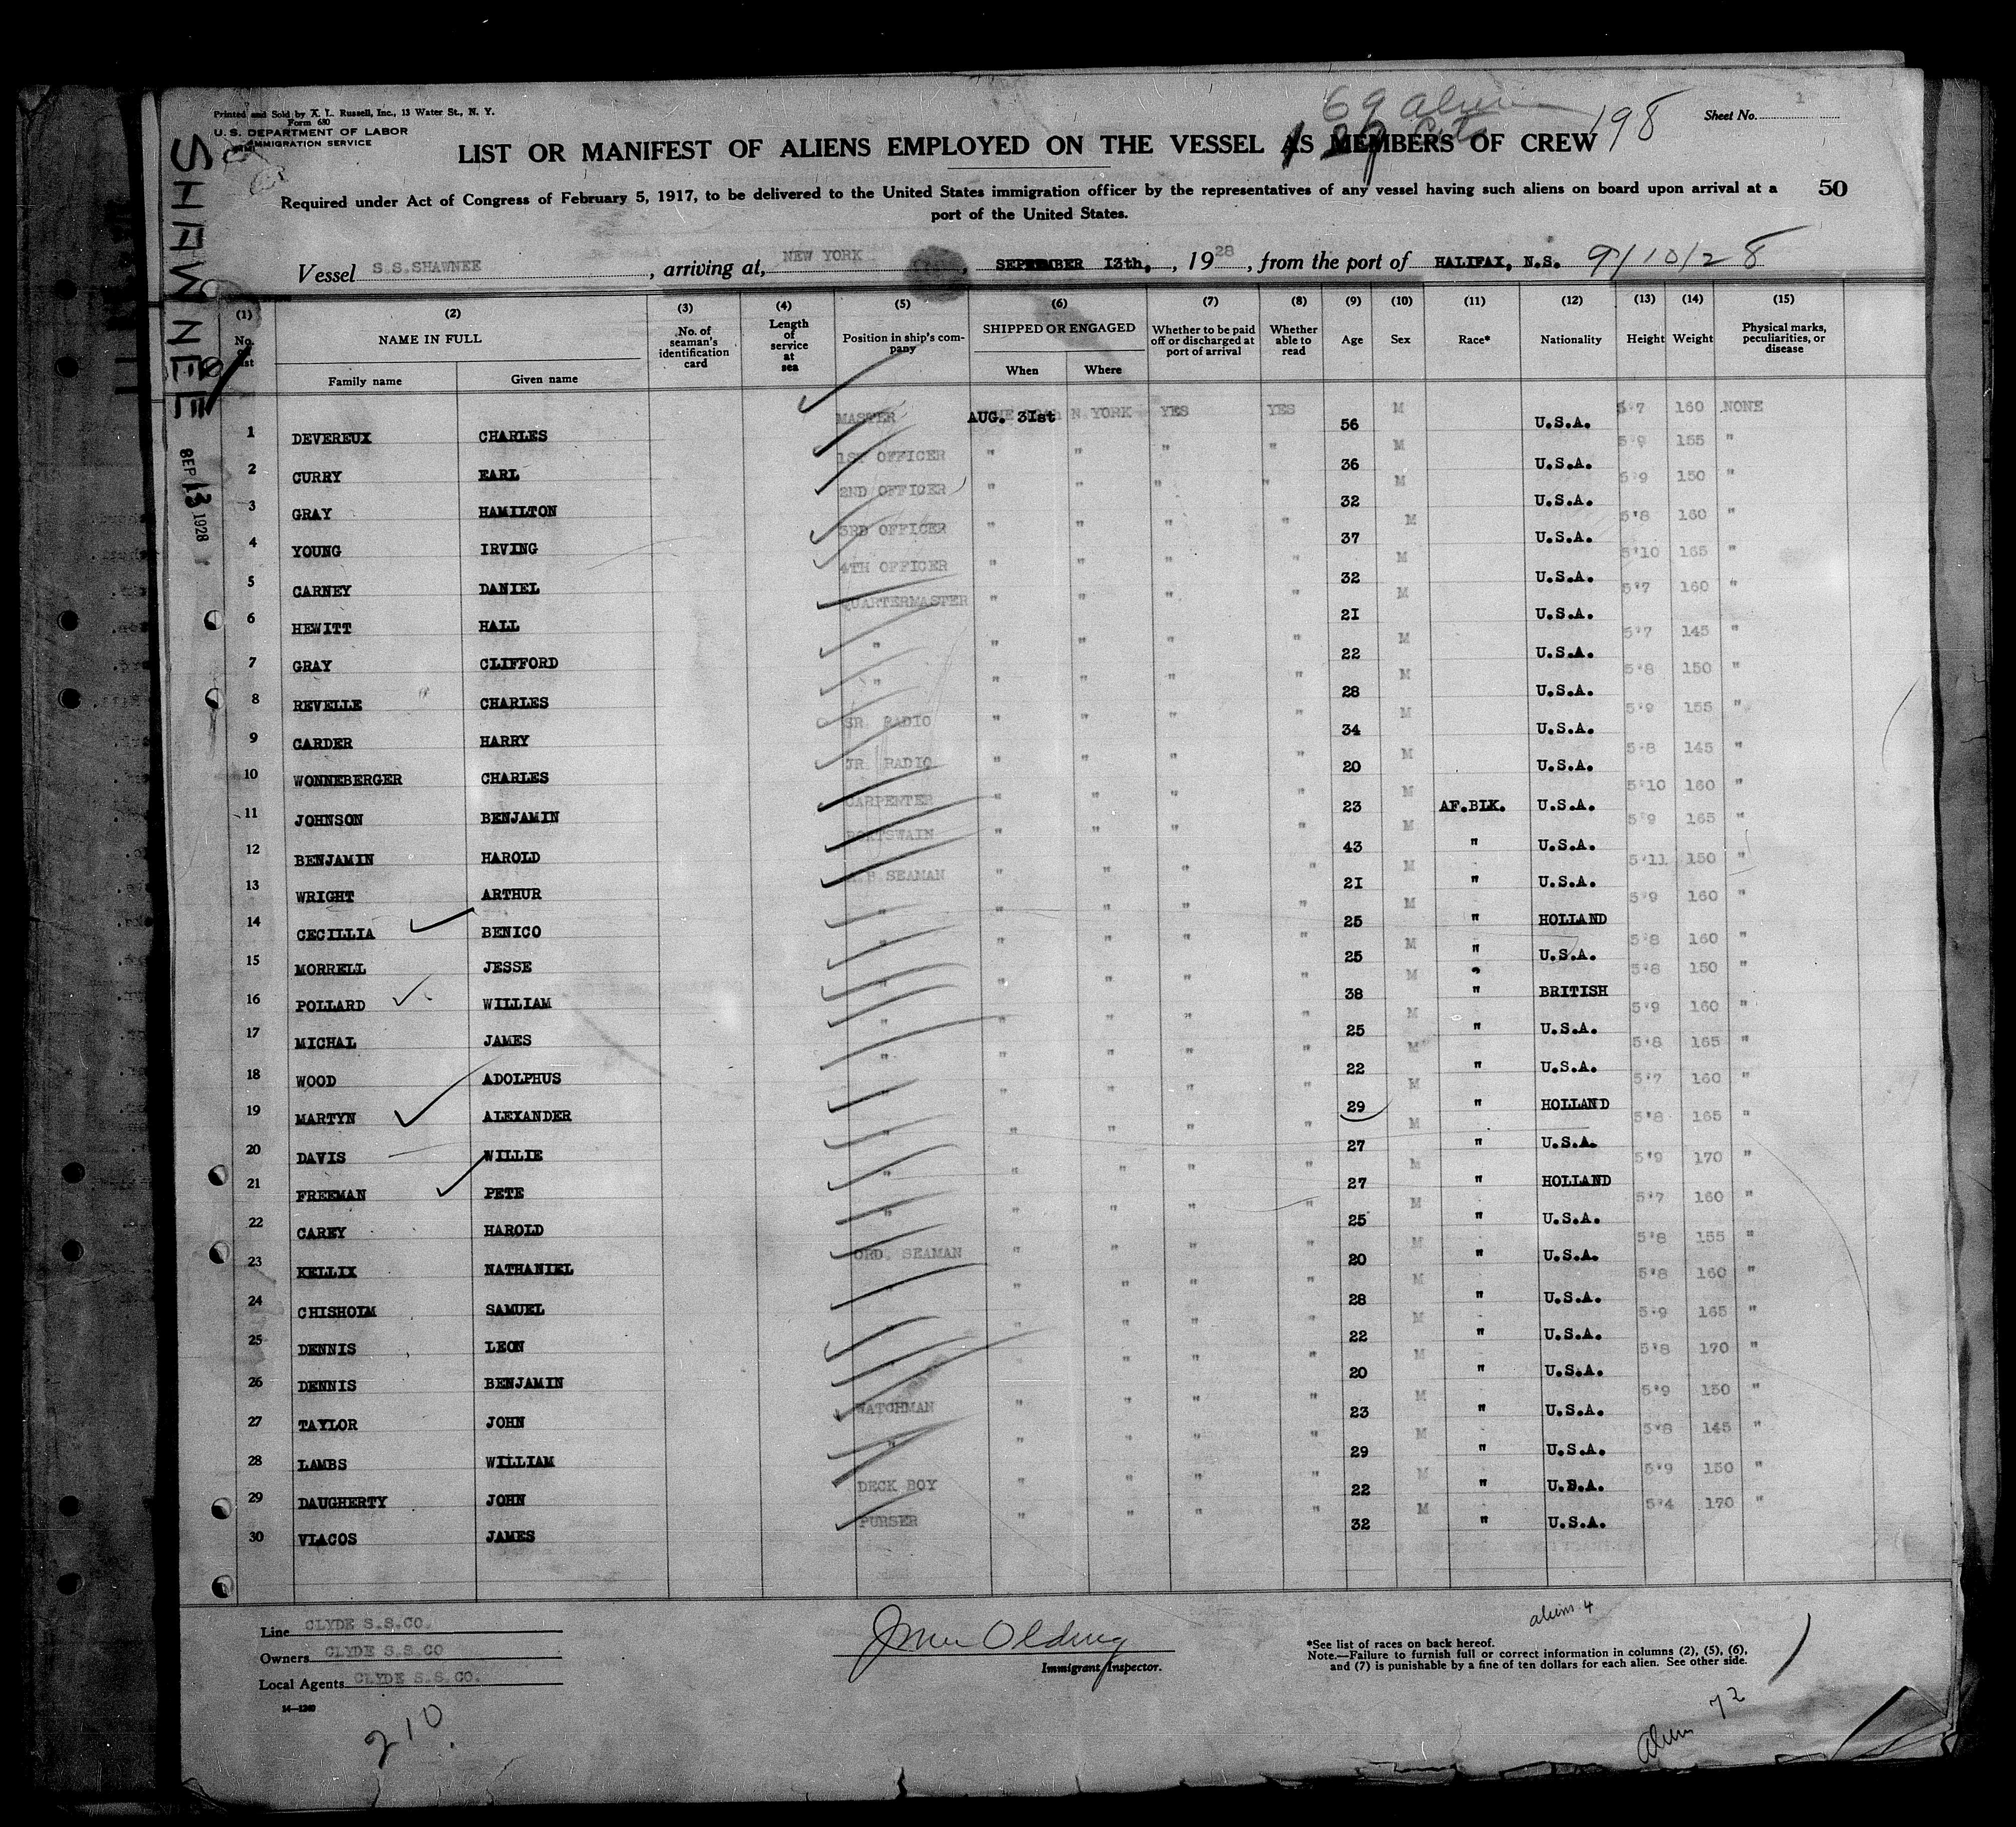 Printed and Sold by X. L. Russell, Inc., 13 Water St., N. Y.
Form 680
U. S. DEPARTMENT OF LABOR
IMMIGRATION SERVICE
SHAWNEE
SEP 13 1928
69 aliens
198
Sheet No. 1
LIST OR MANIFEST OF ALIENS EMPLOYED ON THE VESSEL AS MEMBERS OF CREW
50
Required under Act of Congress of February 5, 1917, to be delivered to the United States immigration officer by the representatives of any vessel having such aliens on board upon arrival at a
port of the United States.
Vessel S.S.SHAWNEE, arriving at, NEW YORK, SEPTEMBER 13th, , 1928, from the port of HALIFAX, N.S. 9/10/28
(1) (2) (3) (4) (5) (6) (7) (8) (9) (10) (11) (12) (13) (14) (15)
No. on list NAME IN FULL Family name Given name No. of seaman's identification card Length of service at sea Position in ship's company SHIPPED OR ENGAGED When Where Whether to be paid off or discharged at port of arrival Whether able to read Age Sex Race* Nationality Height Weight Physical marks, peculiarities, or disease
1 DEVEREUX CHARLES MASTER AUG. 31st N. YORK YES YES 56 M U.S.A. 5'7 160 NONE
2 CURRY EARL 1ST OFFICER " " " " 36 M U.S.A. 5'9 155 "
3 GRAY HAMILTON 2ND OFFICER " " " " 32 M U.S.A. 5'9 150 "
4 YOUNG IRVING 3RD OFFICER " " " " 37 M U.S.A. 5'8 160 "
5 CARNEY DANIEL 4TH OFFICER " " " " 32 M U.S.A. 5'10 165 "
6 HEWITT HALL QUARTERMASTER " " " " 21 M U.S.A. 5'7 160 "
7 GRAY CLIFFORD " " " " " 22 M U.S.A. 5'7 145 "
8 REVELLE CHARLES " " " " " 28 M U.S.A. 5'8 150 "
9 CARDER HARRY SR. RADIO " " " " 34 M U.S.A. 5'9 155 "
10 WONNEBERGER CHARLES JR. RADIO " " " " 20 M U.S.A. 5'8 145 "
11 JOHNSON BENJAMIN CARPENTER " " " " 23 M AF.BLK. U.S.A. 5'10 160 "
12 BENJAMIN HAROLD BOATSWAIN " " " " 43 M " U.S.A. 5'9 165 "
13 WRIGHT ARTHUR A.B.SEAMAN " " " " 21 M " U.S.A. 5'11 150 "
14 CECILLIA BENICO " " " " " 25 M " HOLLAND 5'9 160 "
15 MORRELL JESSE " " " " " 25 M " U.S.A. 5'8 160 "
16 POLLARD WILLIAM " " " " " 38 M " BRITISH 5'8 150 "
17 MICHAL JAMES " " " " " 25 M " U.S.A. 5'9 160 "
18 WOOD ADOLPHUS " " " " " 22 M " U.S.A. 5'8 165 "
19 MARTYN ALEXANDER " " " " 29 M " HOLLAND 5'7 160 "
20 DAVIS WILLIE " " " " " 27 M " U.S.A. 5'8 165 "
21 FREEMAN PETE " " " " " 27 M " HOLLAND 5'9 170 "
22 CAREY HAROLD " " " " " 25 M " U.S.A. 5'7 160 "
23 KELLIX NATHANIEL ORD. SEAMAN " " " " 20 M " U.S.A. 5'8 155 "
24 CHISHOLM SAMUEL " " " " " 28 M " U.S.A. 5'8 160 "
25 DENNIS LEON " " " " 22 M " U.S.A. 5'9 165 "
26 DENNIS BENJAMIN " " " " 20 M " U.S.A. 5'8 170 "
27 TAYLOR JOHN WATCHMAN " " " " 23 M " U.S.A. 5'9 150 "
28 LAMBS WILLIAM " " " " " 29 M " U.S.A. 5'8 145 "
29 DAUGHERTY JOHN DECK BOY " " " " 22 M " U.S.A. 5'9 150 "
30 VLACOS JAMES PURSER " " " " 32 M " U.S.A. 5'4 170 "
Line CLYDE S.S.CO.
Owners CLYDE S.S.CO
Local Agents CLYDE S.S.CO.
14—1240
210
Immigrant Inspector.
aliens 4
*See list of races on back hereof.
Note.—Failure to furnish full or correct information in columns (2), (5), (6),
and (7) is punishable by a fine of ten dollars for each alien. See other side.
Alien 72